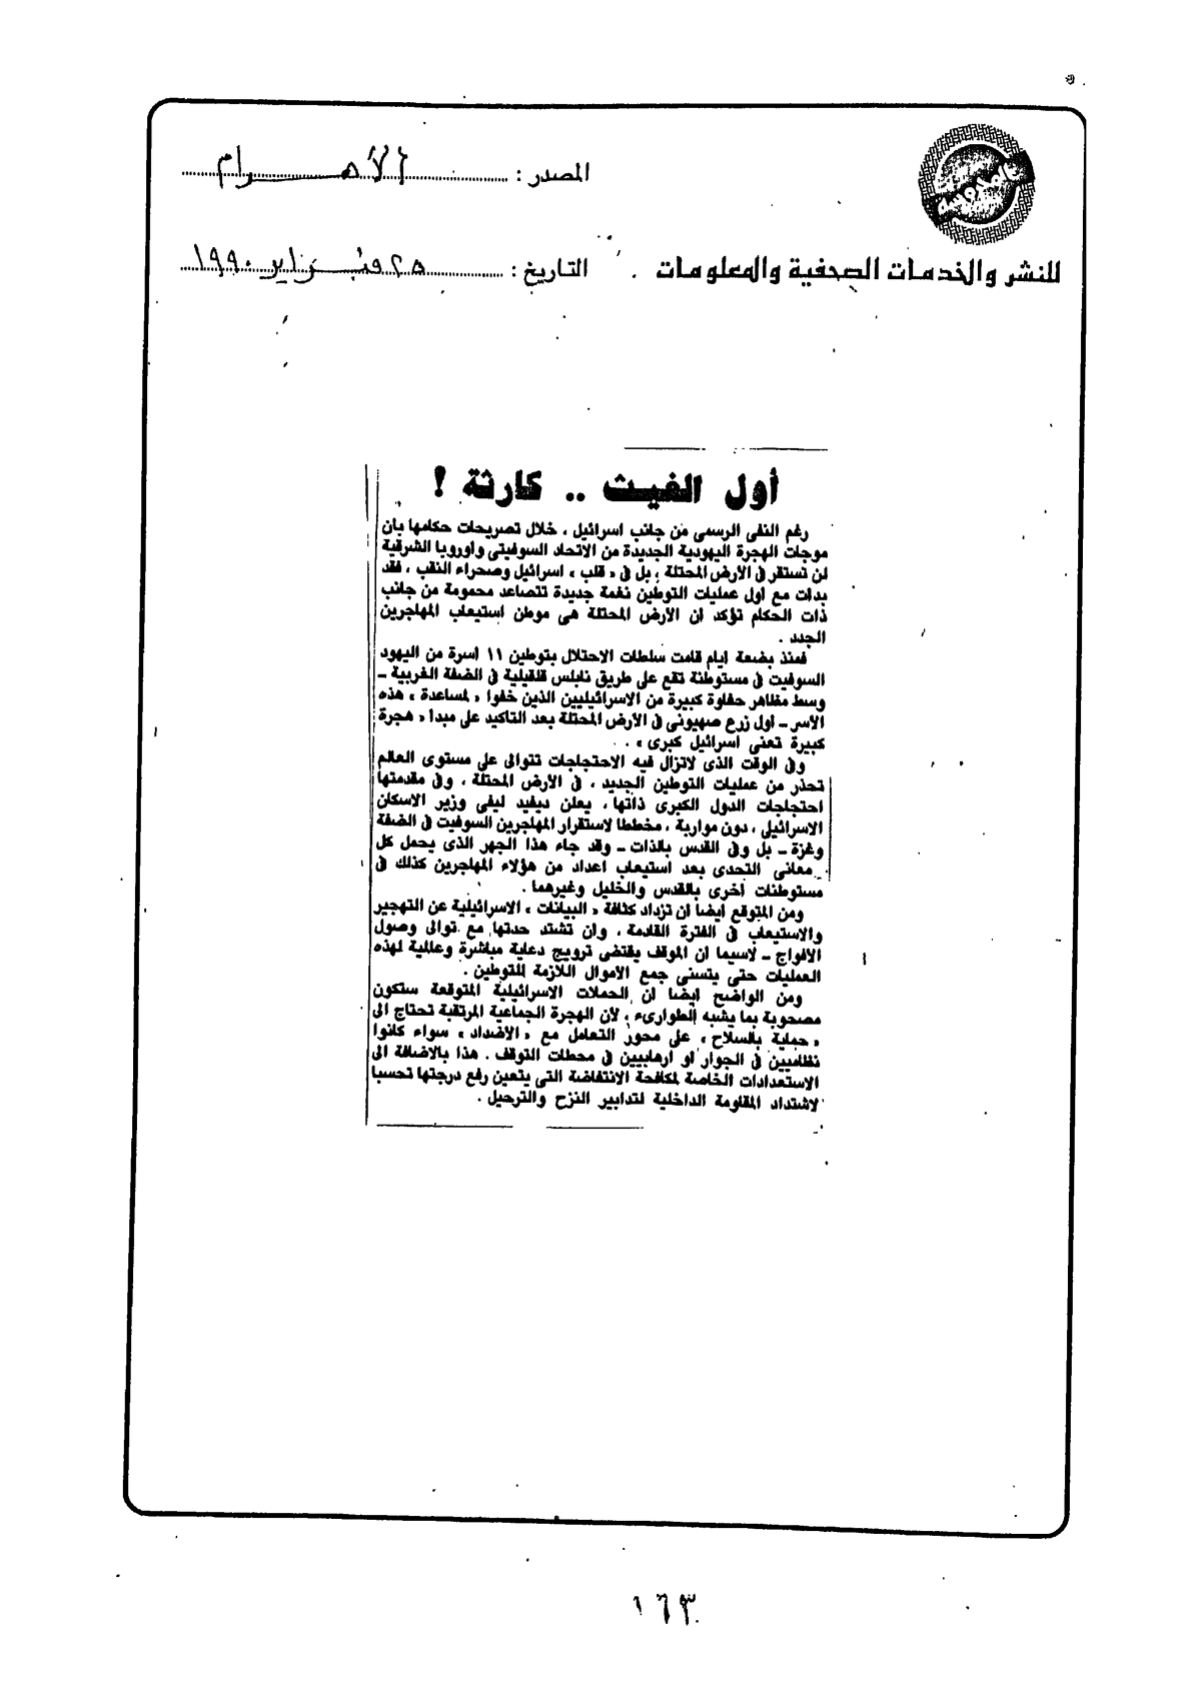 المصدر : الأهرام
للنشر والخدمات الصحفية والمعلومات
التاريخ : ٢٥ فبراير ١٩٩٠
أول الغيث .. كارثة !
رغم النفى الرسمى من جانب اسرائيل ، خلال تصريحات حكامها بان
موجات الهجرة اليهودية الجديدة من الاتحاد السوفيتى واوروبا الشرقية
لن تستقر فى الارض المحتلة ، بل فى « قلب » اسرائيل وصحراء النقب ، فقد
بدات مع اول عمليات التوطين نغمة جديدة تتصاعد محمومة من جانب
ذات الحكام تؤكد ان الارض المحتلة هى موطن استيعاب المهاجرين
الجدد .
فمنذ بضعة ايام قامت سلطات الاحتلال بتوطين ١١ اسرة من اليهود
السوفيت فى مستوطنة تقع على طريق نابلس قلقيلية فى الضفة الغربية –
وسط مظاهر حفاوة كبيرة من الاسرائيليين الذين خفوا « لمساعدة » هذه
الاسر – اول زرع صهيونى فى الارض المحتلة بعد التاكيد على مبدا « هجرة
كبيرة تعنى اسرائيل كبرى » .
وفى الوقت الذى لاتزال فيه الاحتجاجات تتوالى على مستوى العالم
تحذر من عمليات التوطين الجديد ، فى الارض المحتلة ، وفى مقدمتها
احتجاجات الدول الكبرى ذاتها ، يعلن ديفيد ليفى وزير الاسكان
الاسرائيلى ، دون مواربة ، مخططا لاستقرار المهاجرين السوفيت فى الضفة
وغزة – بل وفى القدس بالذات – وقد جاء هذا الجهر الذى يحمل كل
معانى التحدى بعد استيعاب اعداد من هؤلاء المهاجرين كذلك فى
مستوطنات اخرى بالقدس والخليل وغيرهما .
ومن المتوقع ايضا ان تزداد كثافة « البيانات » الاسرائيلية عن التهجير
والاستيعاب فى الفترة القادمة ، وان تشتد حدتها مع توالى وصول
الافواج – لاسيما ان الموقف يقتضى ترويج دعاية مباشرة وعالمية لهذه
العمليات حتى يتسنى جمع الاموال اللازمة للتوطين .
ومن الواضح ايضا ان الحملات الاسرائيلية المتوقعة ستكون
مصحوبة بما يشبه الطوارىء ، لان الهجرة الجماعية المرتقبة تحتاج الى
« حماية بالسلاح » على محور التعامل مع « الاضداد » سواء كانوا
نظاميين فى الجوار او ارهابيين فى محطات التوقف . هذا بالاضافة الى
الاستعدادات الخاصة لمكافحة الانتفاضة التى يتعين رفع درجتها تحسبا
لاشتداد المقاومة الداخلية لتدابير النزح والترحيل .
١٦٣